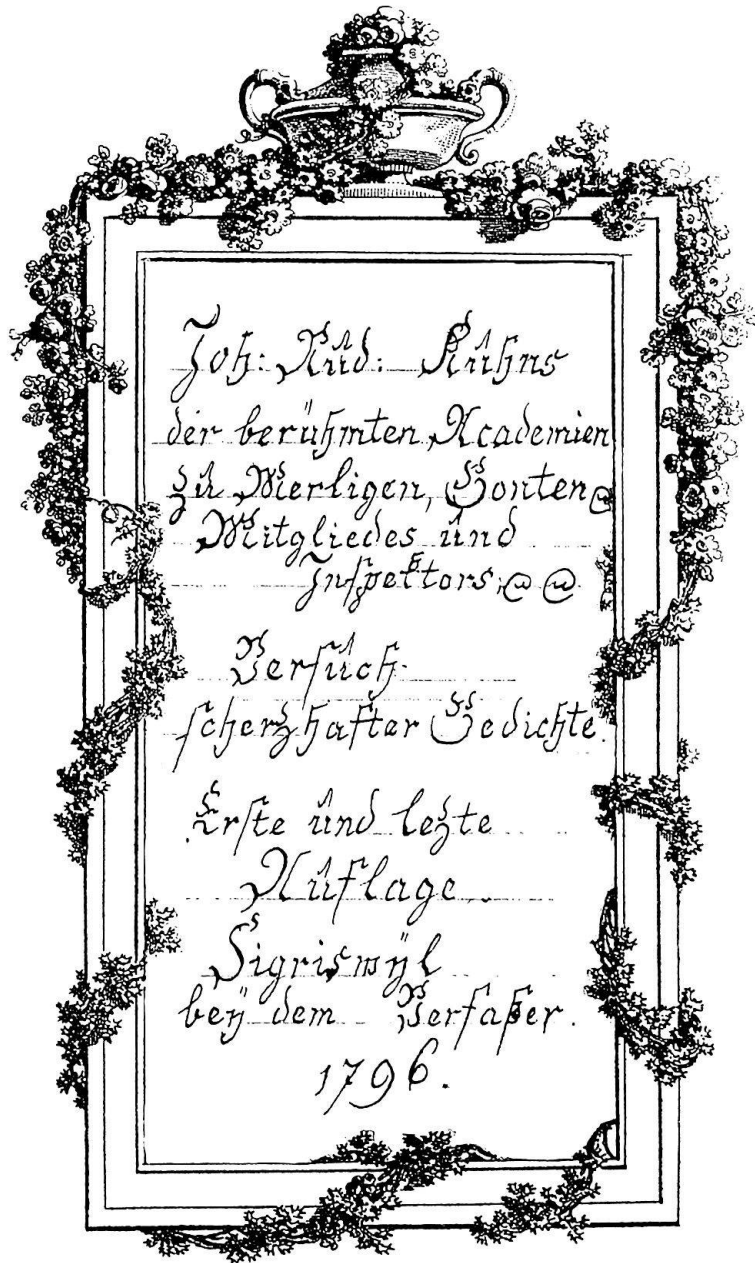 Joh: Rud: Kuhns
der berühmten Academien
zu Merligen, Gonten
Mitgliedes und
Inspektors,
Versuch
scherzhafter Gedichte.
Erste und lezte
Auflage
Sigriswÿl
beÿ dem Verfaßer.
1796.